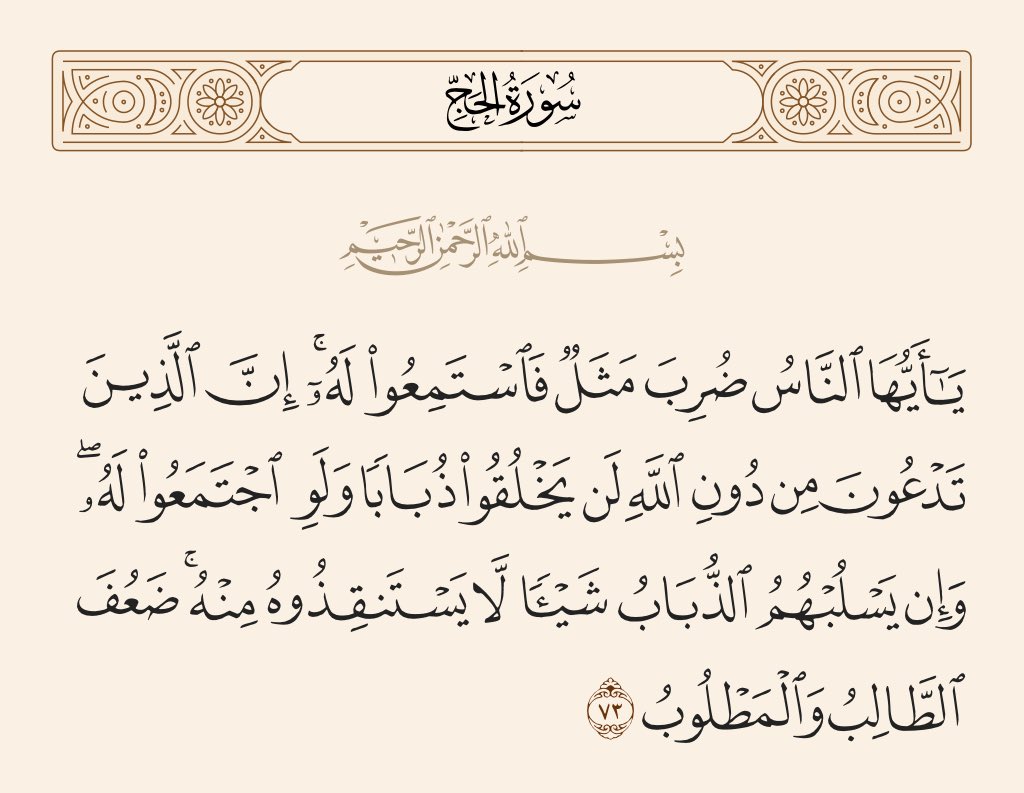 سُورَةُ الْحَجِّ
بِسْمِ ٱللَّهِ ٱلرَّحْمَٰنِ ٱلرَّحِيمِ
يَٰٓأَيُّهَا ٱلنَّاسُ ضُرِبَ مَثَلٌ فَٱسْتَمِعُوا۟ لَهُۥٓ ۚ إِنَّ ٱلَّذِينَ
تَدْعُونَ مِن دُونِ ٱللَّهِ لَن يَخْلُقُوا۟ ذُبَابًا وَلَوِ ٱجْتَمَعُوا۟ لَهُۥ ۖ
وَإِن يَسْلُبْهُمُ ٱلذُّبَابُ شَيْـًٔا لَّا يَسْتَنقِذُوهُ مِنْهُ ۚ ضَعُفَ
ٱلطَّالِبُ وَٱلْمَطْلُوبُ ٧٣